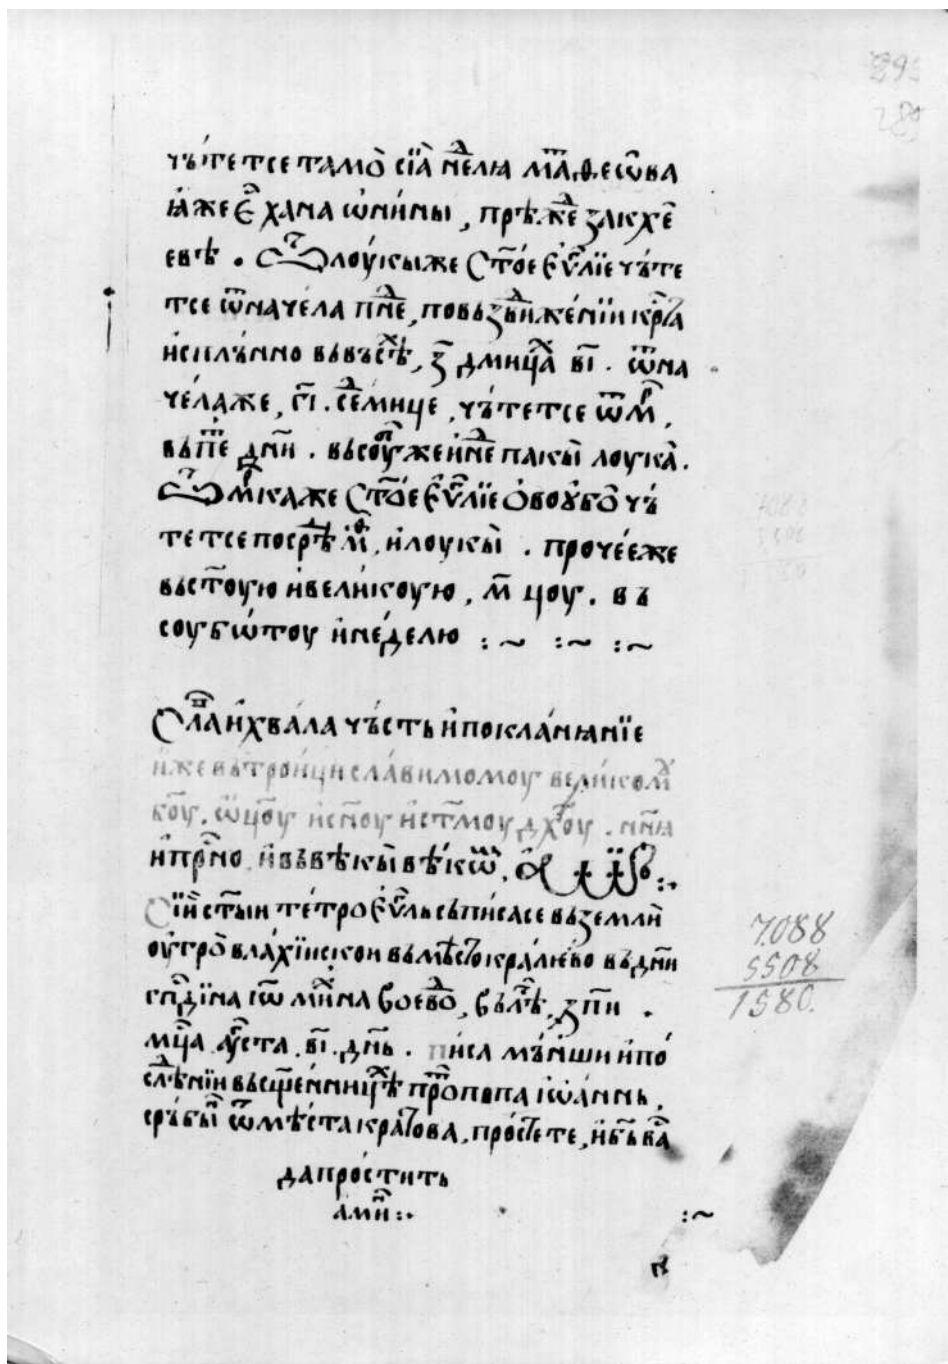 чь́тетсе тамо̀ сїа̀ нⷣелꙗ мⷮаѳеѡ҆ва
ꙗ҆же є҆ⷭ҇ ханаѡни́ны , прѣжⷣе закхе҆
евѣ . Ѿ лоу́кыже ст҃о́е є҆ѵⷢ҇лїе чь́те
тсе ѿ наче́ла пнⷣе , повьздви́же́нїи крⷭ҇та
и҆спль́нно вьвъсⷯѣ , з҃ дмицⷯа в҃і . ѿ на
че́лаже , г҃і . сⷣемице , чь́тетсе ѿ мⷬ ,
вьпⷮе дн҃и . вьсоуⷠже и҆нⷣе пакы̀ лоука̀ .
Ѿ мⷬкаже ст҃о́е є҆ѵⷢ҇лїе ѻ҆боубо̀ чь́
тетсе посрⷣѣ мⷴ , и҆ лоукы̀ . проче́еже
вьст҃оую и҆вели́коую , м҃цоу . въ
соубѡ́тоу и҆не́делю :~ :~ :~
Сла́ва и҆хвала чь́сть и҆поклана́нїе
и҆же вътрои́ци сла́вимомоу вели́комⷹ
бо҃у . ѿц҃оу и҆сн҃оу и҆ст҃моу дх҃оу . нн҃ꙗ
и҆прⷭ҇но и҆въвѣкы̀ вѣ́кѡⷨ .
Сїи҆ ст҃ыи те́тро є҆ѵⷢ҇ль съпи́сасе вьземли҆
оу҆гро̀влахїискои вьмѣⷭ҇то кра́лиево въдн҃и
гп�ⷭ҇дина іѡ҆ михна воевⷣо , вълⷮѣ ,зпи .
мцⷭ҇а аѵⷢ҇ста . в҃і . дн҃ь . писа мъ́нши и҆по́
слѣⷣнїи вьсщ҃е́нницⷯѣ прⷪ҇топопа іѡа́ннь ,
срь́бы̀ ѿ мѣ́ста кра́това , про́стете , и҆ б҃ь ва̀
да про́стить
амⷩ҇и :·
:~
7.088
5508
1580.